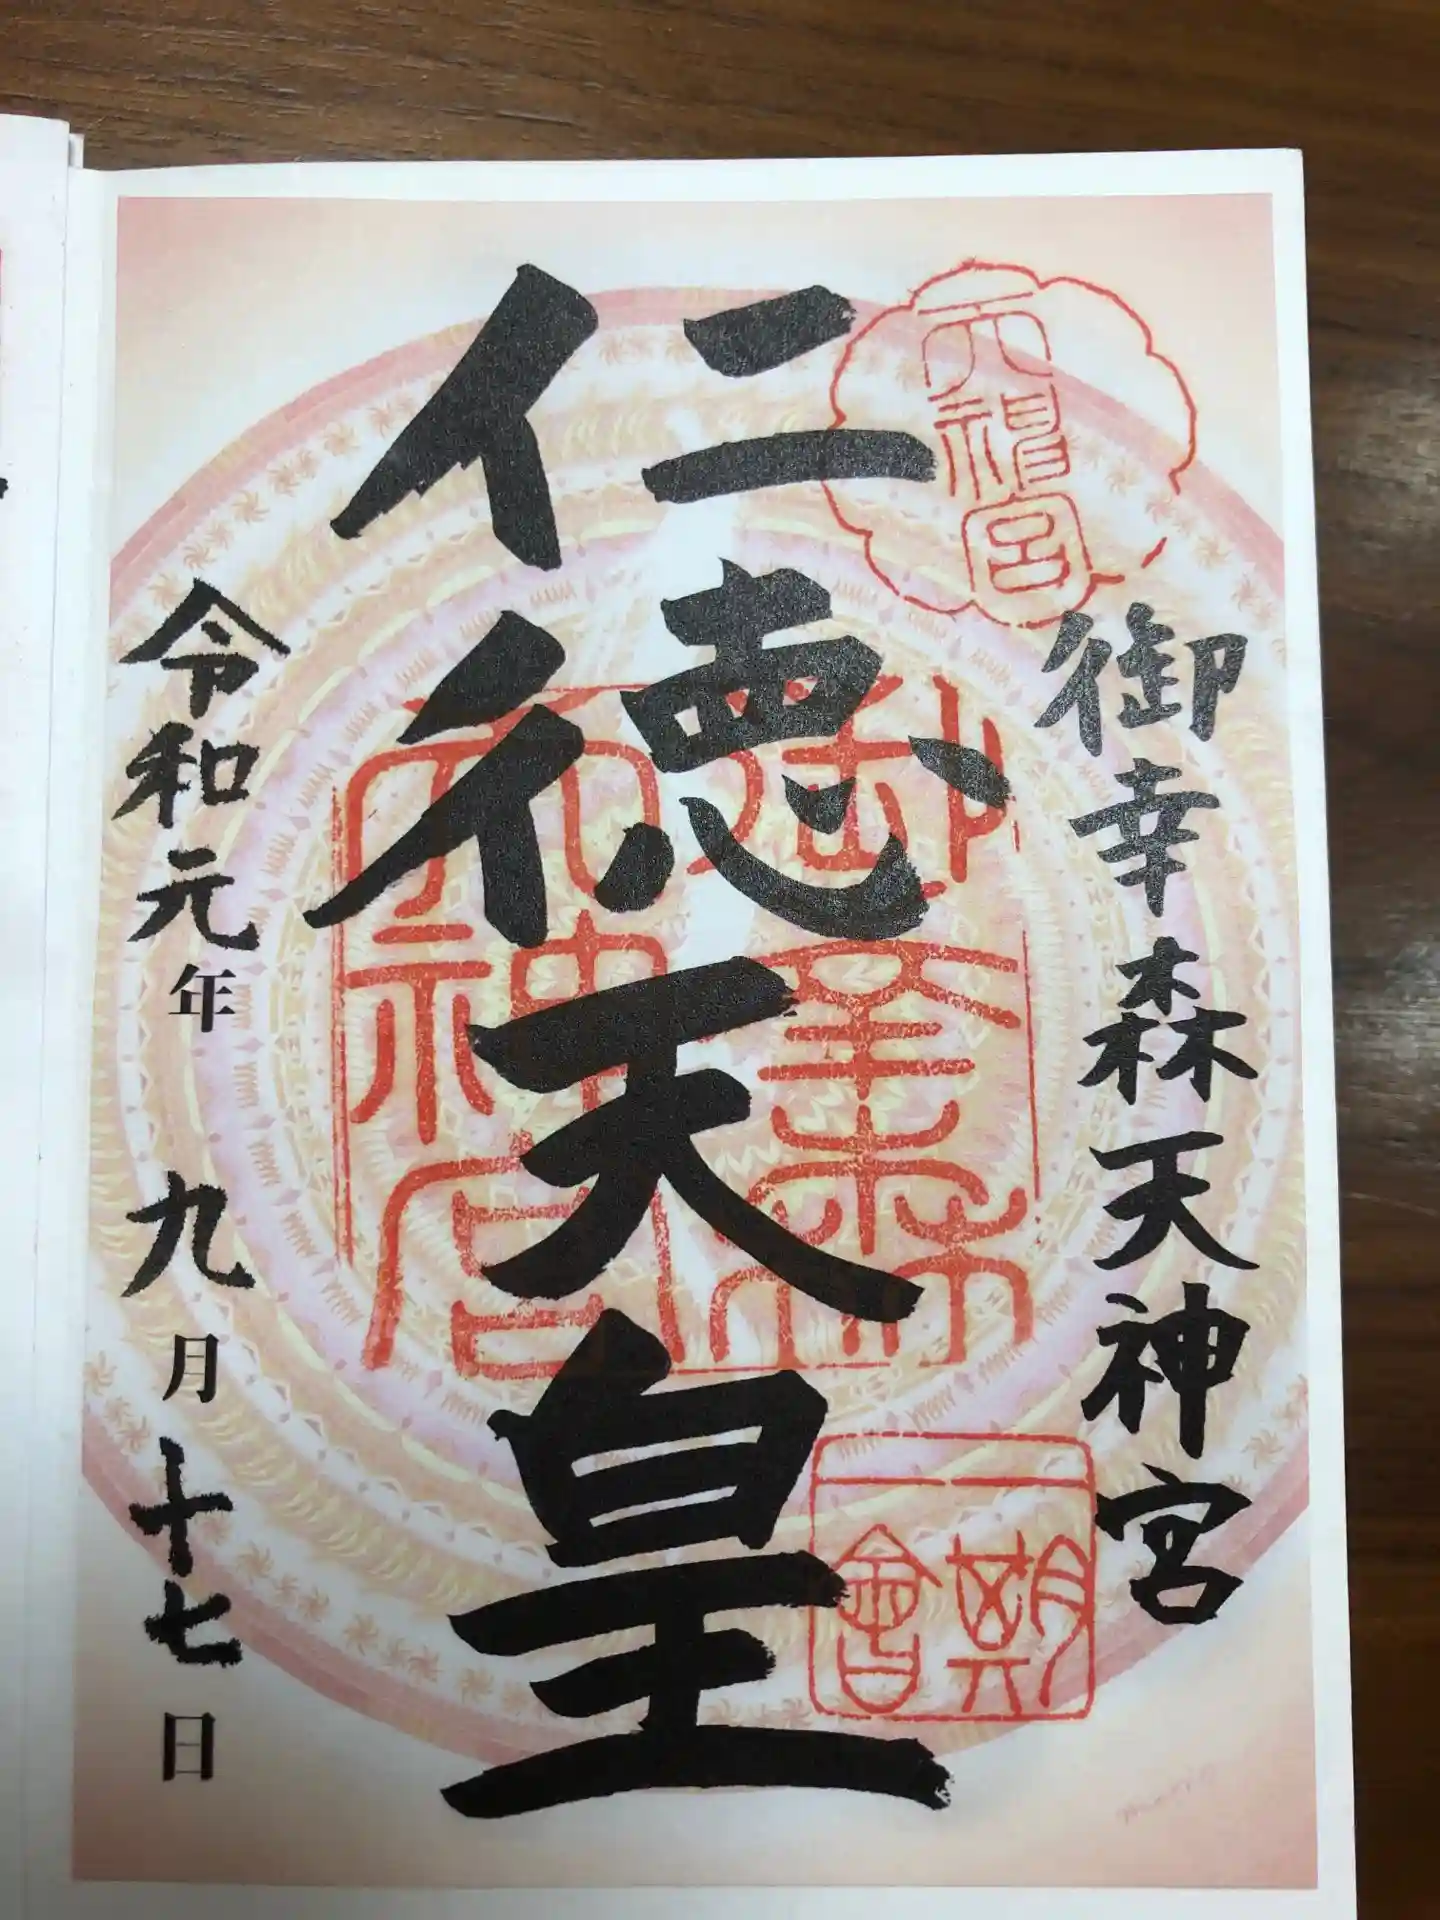 御幸森天神宮
仁徳天皇
令和元年 九月十七日
天神宮
御幸森
天神宮
朝會